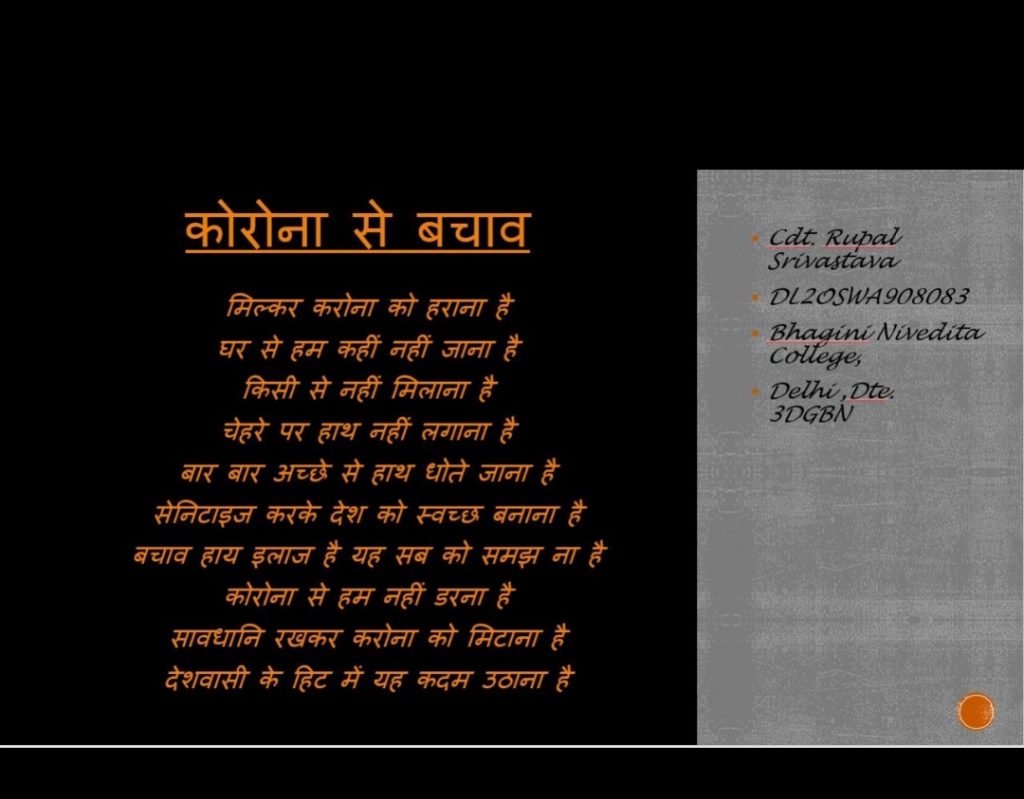 कोरोना से बचाव
मिल्कर करोना को हराना है
घर से हम कहीं नहीं जाना है
किसी से नहीं मिलाना है
चेहरे पर हाथ नहीं लगाना है
बार बार अच्छे से हाथ धोते जाना है
सेनिटाइज करके देश को स्वच्छ बनाना है
बचाव हाय इलाज है यह सब को समझ ना है
कोरोना से हम नहीं डरना है
सावधानि रखकर करोना को मिटाना है
देशवासी के हिट में यह कदम उठाना है
Cdt. Rupal
Srivastava
DL2OSWA908083
Bhagini Nivedita
College,
Delhi ,Dte.
3DGBN